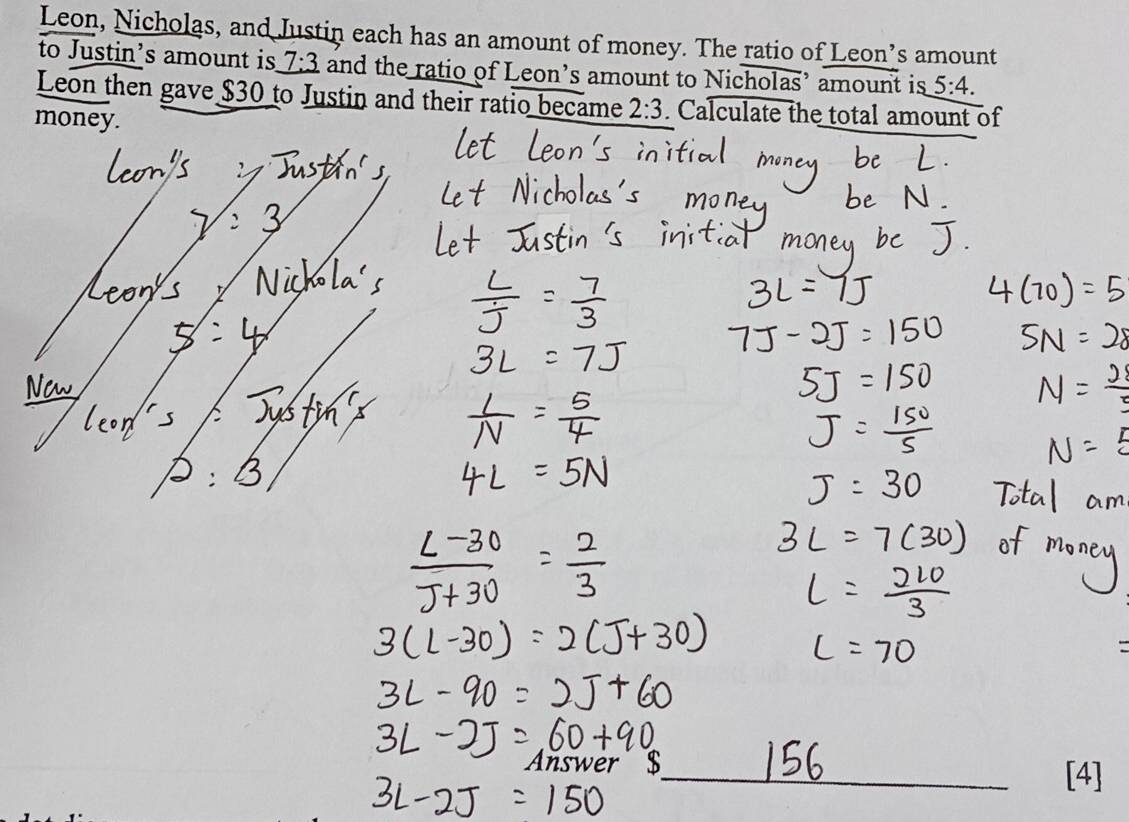 Leon, Nicholas, and Justin each has an amount of money. The ratio of Leon's amount
to Justin's amount is 7:3 and the ratio of Leon's amount to Nicholas' amount is 5:4.
Leon then gave $30 to Justin and their ratio became 2:3. Calculate the total amount of
money.
Leon's : Justin's
7 : 3
Leon's : Nichola's
5 : 4
New
Leon's : Justin's
2 : 3
Let Leon's initial money be L.
Let Nicholas's money be N.
Let Justin's initial money be J.
L/J = 7/3
3L = 7J
L/N = 5/4
4L = 5N
L-30/J+30 = 2/3
3(L-30) = 2(J+30)
3L - 90 = 2J + 60
3L - 2J = 60 + 90
3L - 2J = 150
3L = 7J
7J - 2J = 150
5J = 150
J = 150/5
J = 30
3L = 7(30)
L = 210/3
L = 70
4(70) = 5
5N = 28
N =
N = 5
Total
of money
=
Answer $ 156
[4]